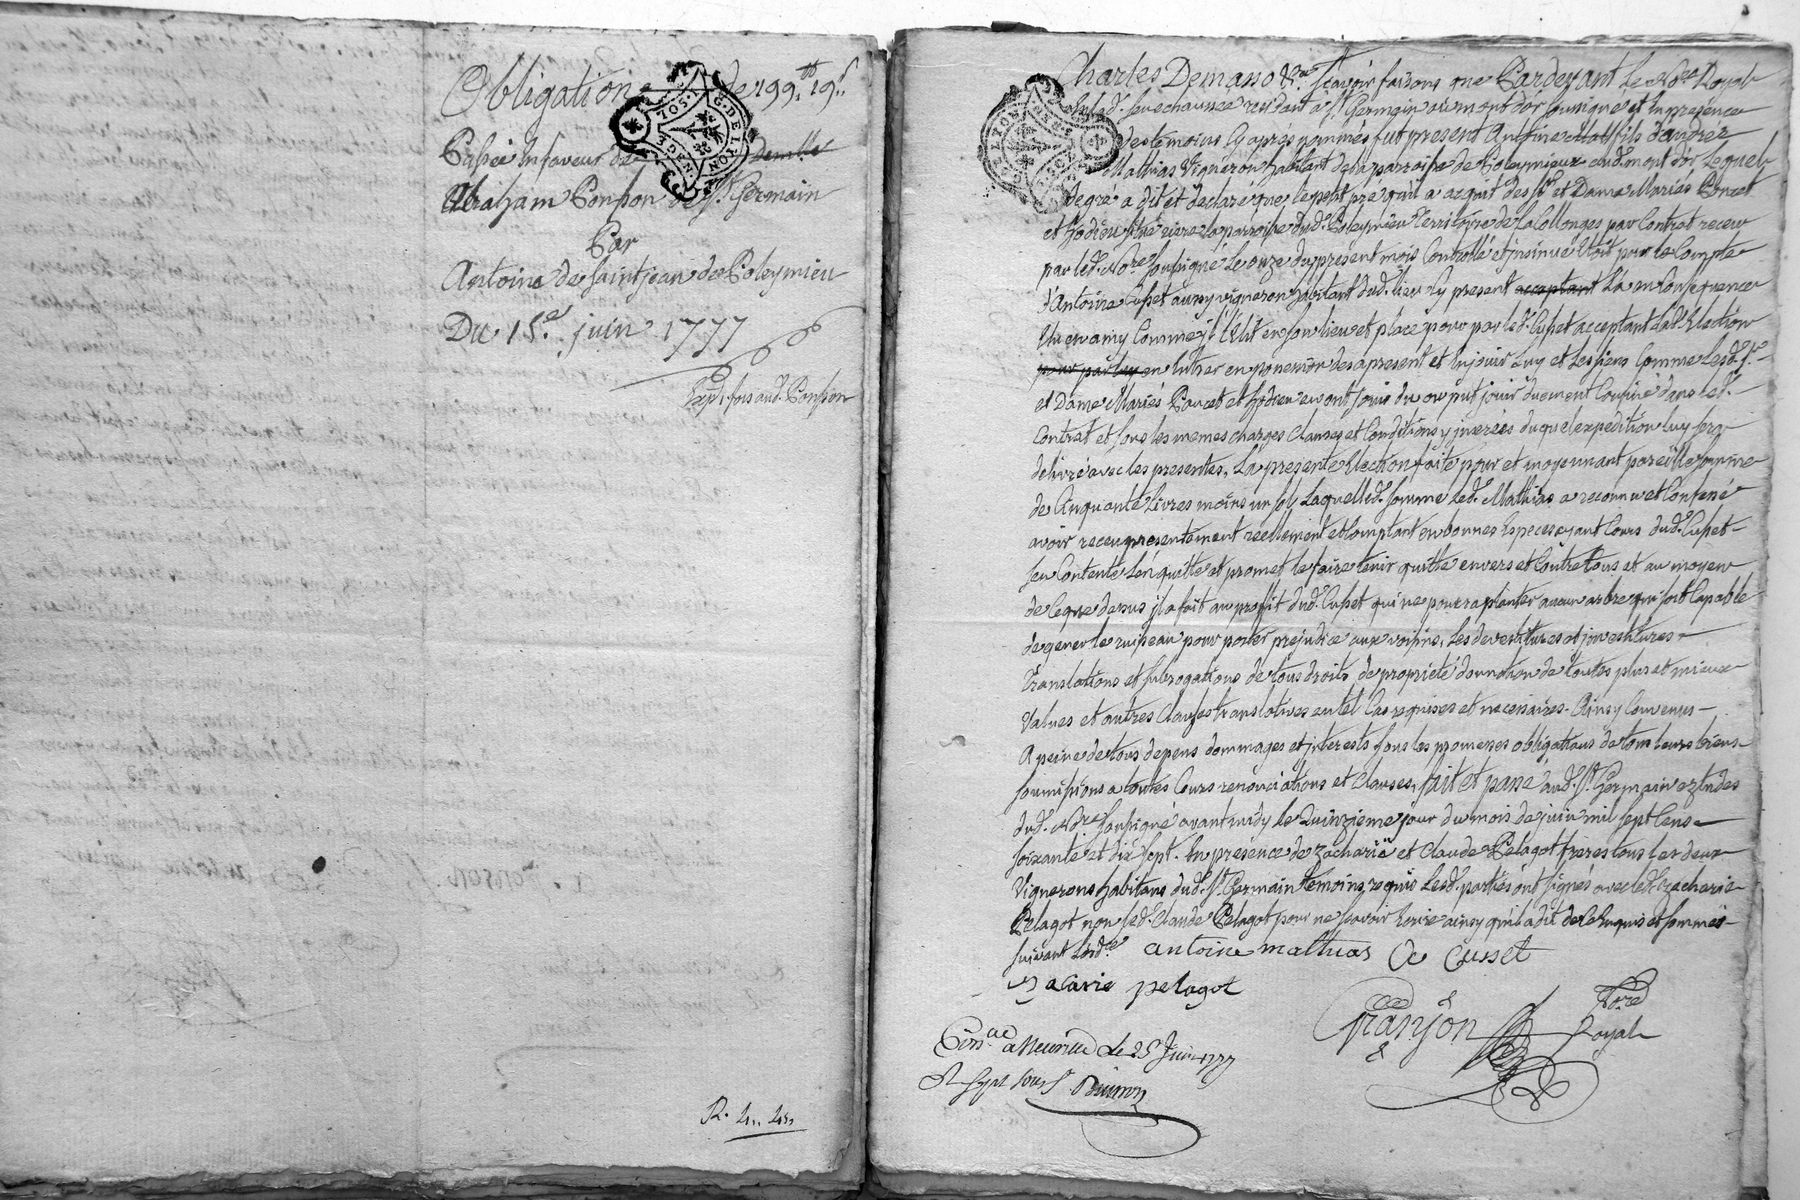 Obligation de 199.tt 19.s
Passée en faveur de demlle
Abraham Ponson de St. Germain
Par
Antoine de Saintjean de Poleymieu
Du 15.e juin 1777
Exp. fois aud. Ponson
R. 4,, 4s,,
Charles Demaso &ra. scavoir faisons que Pardevant Le Nore Royal
en lad. senechaussée residant a St. Germain au mont dor soussigné et en presence
des temoins cy après nommés fut present Antoine Mathias fils d'andrez
Mathias Vigneron habitant de la parroisse de Poleymieux audt mont d'or Lequel
de gré a dit et declaré que le petit pré qu'il a acquit des Sr. et Dame Mariés Poncet
et hodieu situé riere la parroisse dud. Poleymieu Territoire de La Collonges par Contrat receu
par led. Nore soussigné Le onze du present mois Controllé et insinué étoit pour le Compte
d'Antoine Cusset aussy vigneron habitant dud. lieu cy present acceptant La en Consequence
Elu en amy Comme jl l'Elit en son lieu et place pour par led. Cusset acceptant Lad. Election
pour par luy en Entrer en possession des apresent et en jouir Luy et Les siens Comme Lesd. Sr.
et Dame Mariés Poncet et hodieu en ont joui du ou put jouir duement Confiné dans led.
Contrat et sous les memes charges clauses et Conditions y inserées duquel expedition luy sera
délivré avec les presentes, La presente Election faite pour et moyennant pareille somme
de Cinquante Livres moins un sol Laquelled. somme Led. Mathias a reconnu et Confessé
avoir receu presentement reellement et Comptant en bonnes Especes ayant Cours dud. Cusset
sen Contente L'en quitte et promet le faire tenir quitte envers et Contre tous et au moyen
de Ceque dessus jl a fait au profit dud. Cusset qui ne pourra planter aucun arbre qui soit Capable
de gener le ruisseau pour porter prejudice aux voisins, Les devestitures et investitures
Translations et subrogations de tous droits de propriété donnation de toutes plus et mieux
Values et autres Clauses translatives en tel Cas requises et necessaires. Ainsy Convenus
A peine de tous depens dommages et interests sous les promesses obligations de tous leurs biens
soumissions a toutes Cours renonciations et clauses, fait et passé aud. St. Germain ez Etudes
dud. Nore soussigné avant midy Le Quinzieme jour du mois de juin mil sept Cens
soixante et dix sept. En presence de Zacharie et Claude Pelagot freres tous les deux
Vignerons habitans dud. St. Germain temoins requis Lesd. parties ont signés avec led. Zacharie
Pelagot non led. Claude Pelagot pour ne scavoir Ecrire ainsy qu'il a dit de ce Enquis et sommés
suivant Lord.ce antoine mathias Ce Cusset
zacarie pelagot
Granjon Nore
Royal
le 25 Juin 1777